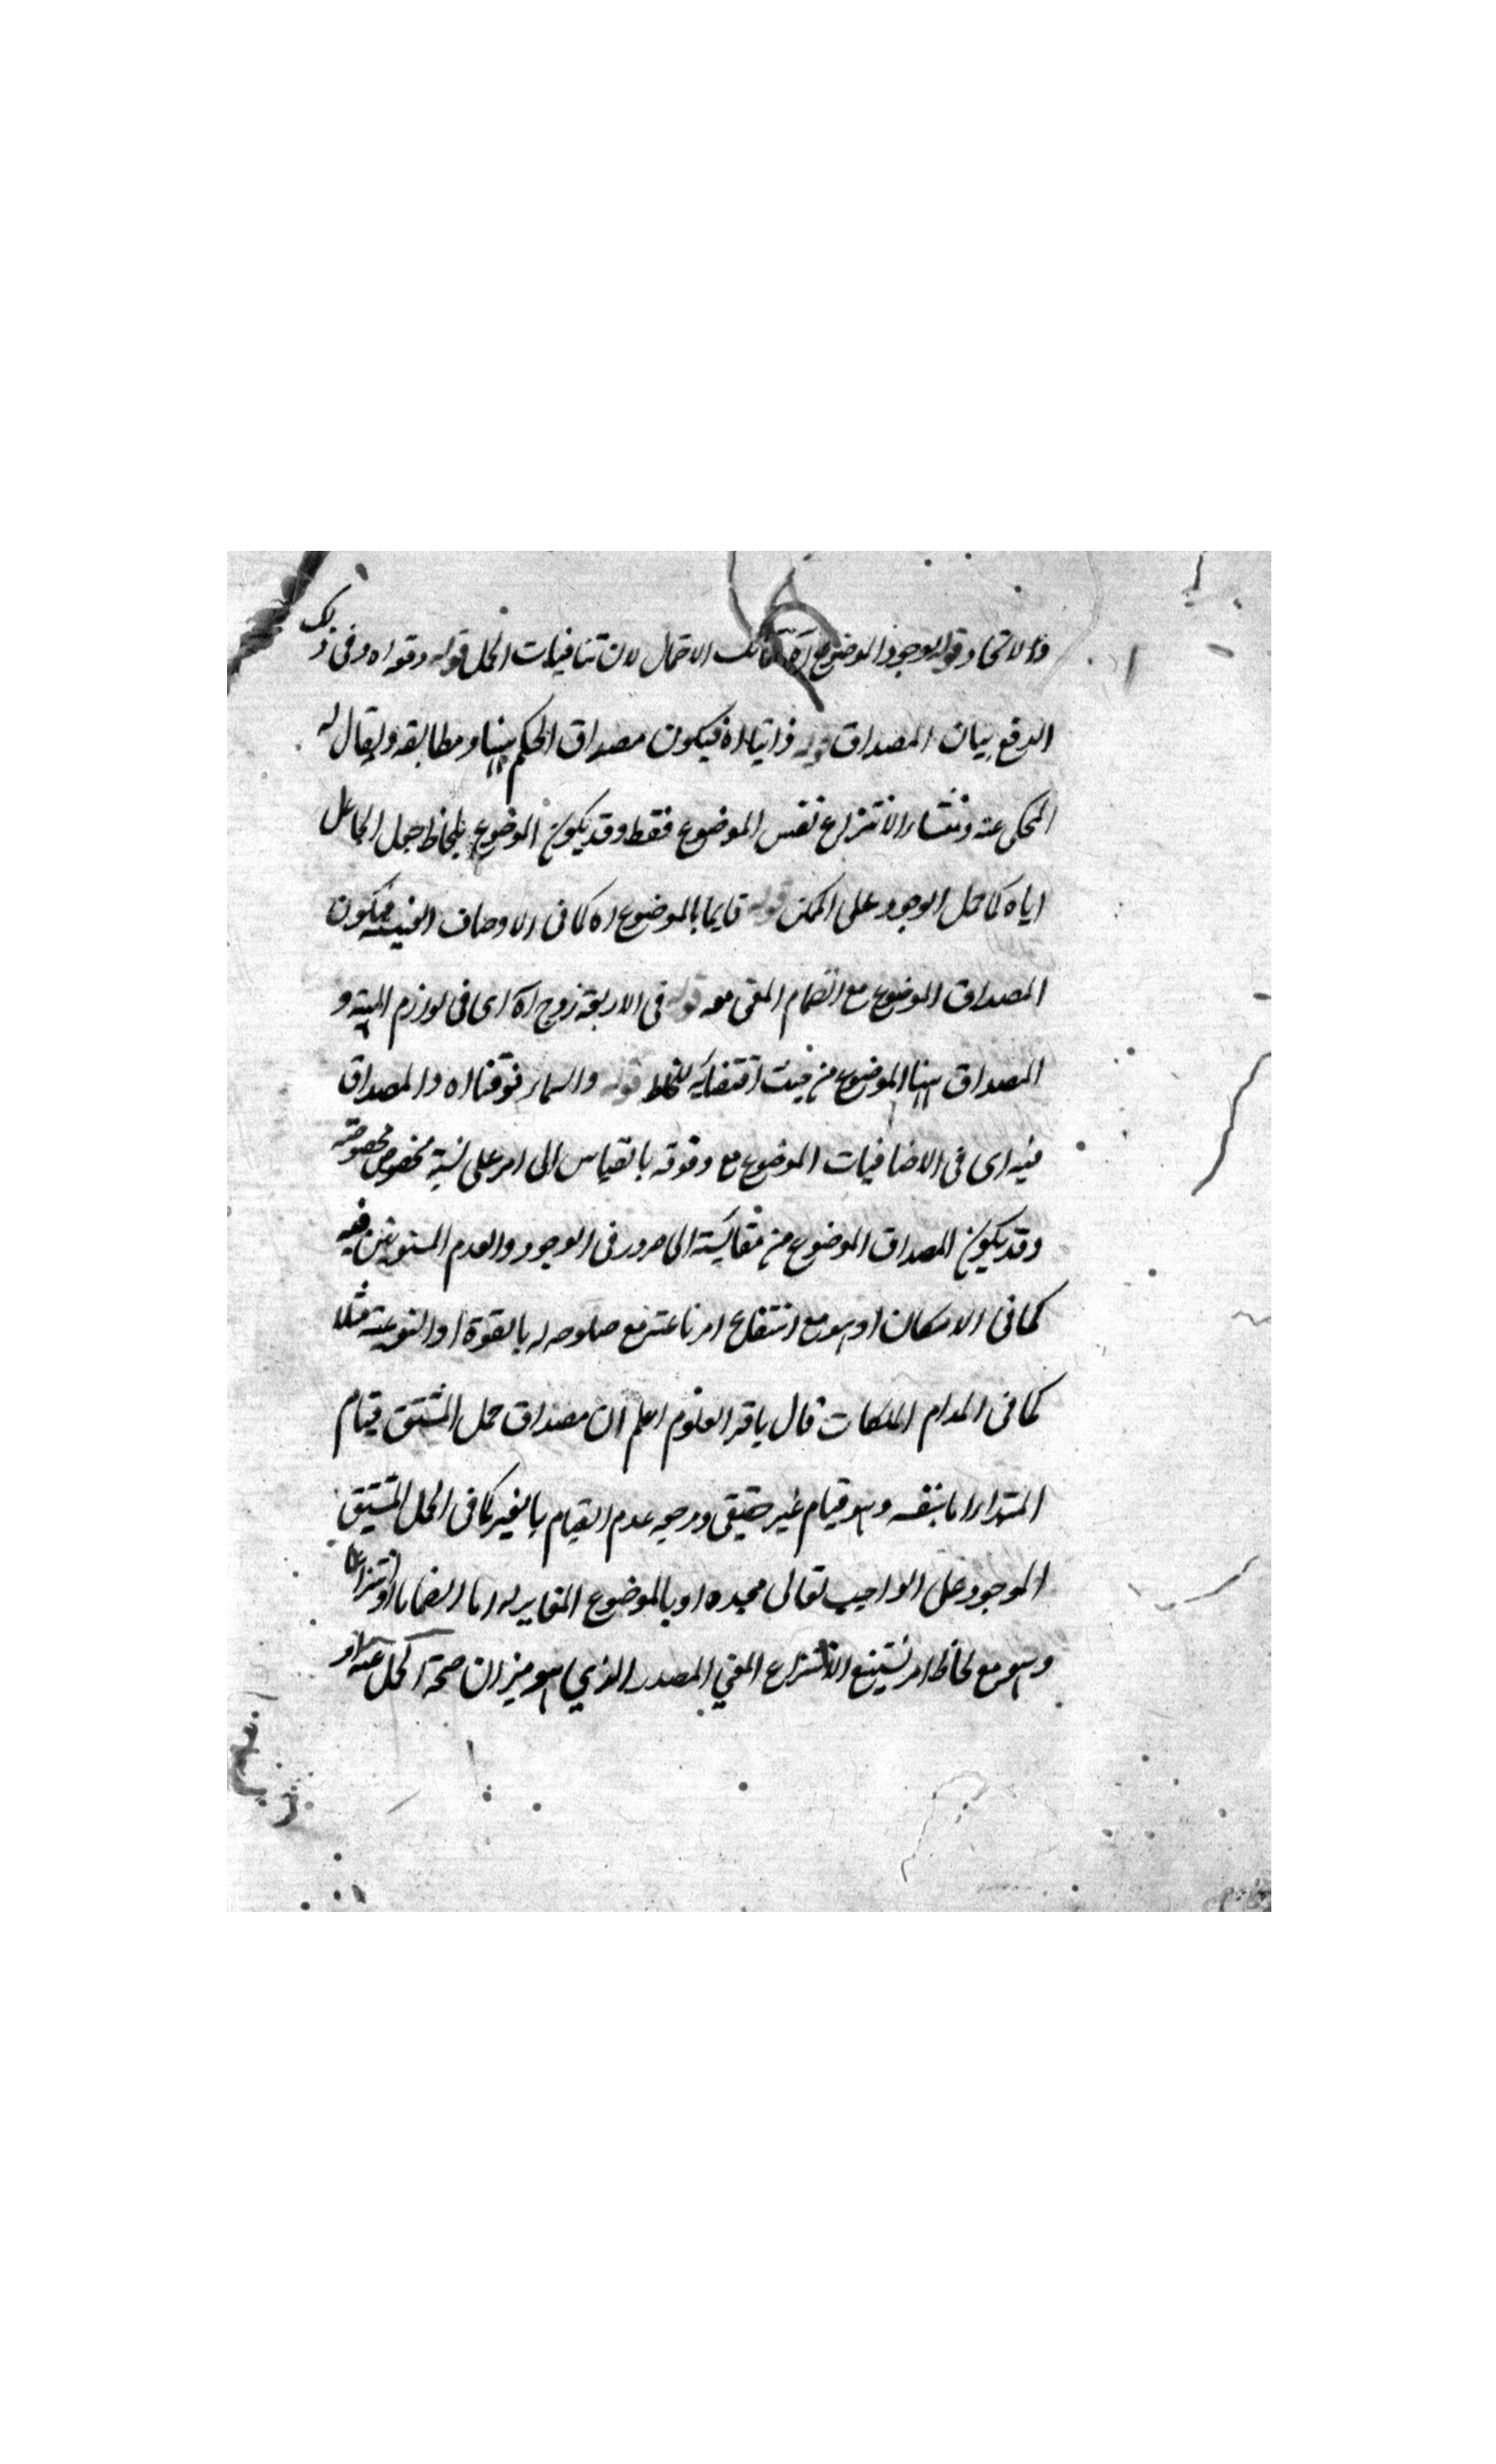 والاتحاد قوله لوجود الموضوع اه تلك الاحتمال لان تنافيات الحمل قوله وقوله اه وفي ذلك
الدفع بيان المصداق قوله ذاتيا اه فيكون مصداق الحكم ههنا ومطابقه ويقال له
المحكي عنه ومنشاء الانتزاع نفس الموضوع فقط وقد يكون الموضوع بلحاظ جعل الجاعل
اياه كما حمل الوجود على الممكن قوله قايما بالموضوع اه كما في الاوصاف العينية فيكون
المصداق الموضوع مع انضمام المعنى معه قوله في الاربعة زوج اه اى في لوازم المهية و
المصداق ههنا الموضوع من حيث اقتضائه للمحمول قوله والسماء فوقنا اه والمصداق
فيه اى في الاضافيات الموضوع مع وقوعه بالقياس الى امر على نسبة مخصوص مخصوصة
وقد يكون المصداق الموضوع من مقايسته الى ضرورتي الوجود والعدم المسلوبتين فيه
كما في الامكان او هو مع انتفاع امر ما عنه مع صلوحه له بالقوة او النوعية مثلا
كما في اعدام الملكات قال باقر العلوم اعلم ان مصداق حمل المشتق قيام
المبتداء اما بنفسه وهو قيام غير حقيقى ومرجعه عدم القيام بالغير كما في الحمل المشتق
الموجود على الواجب تعالى مجده او بالموضوع المغاير له اما انضماما او انتزاعا
وهو مع لحاظ امر يستتبع الانتزاع المعنى المصدر الذي هو ميزان صحة الحمل عنه او